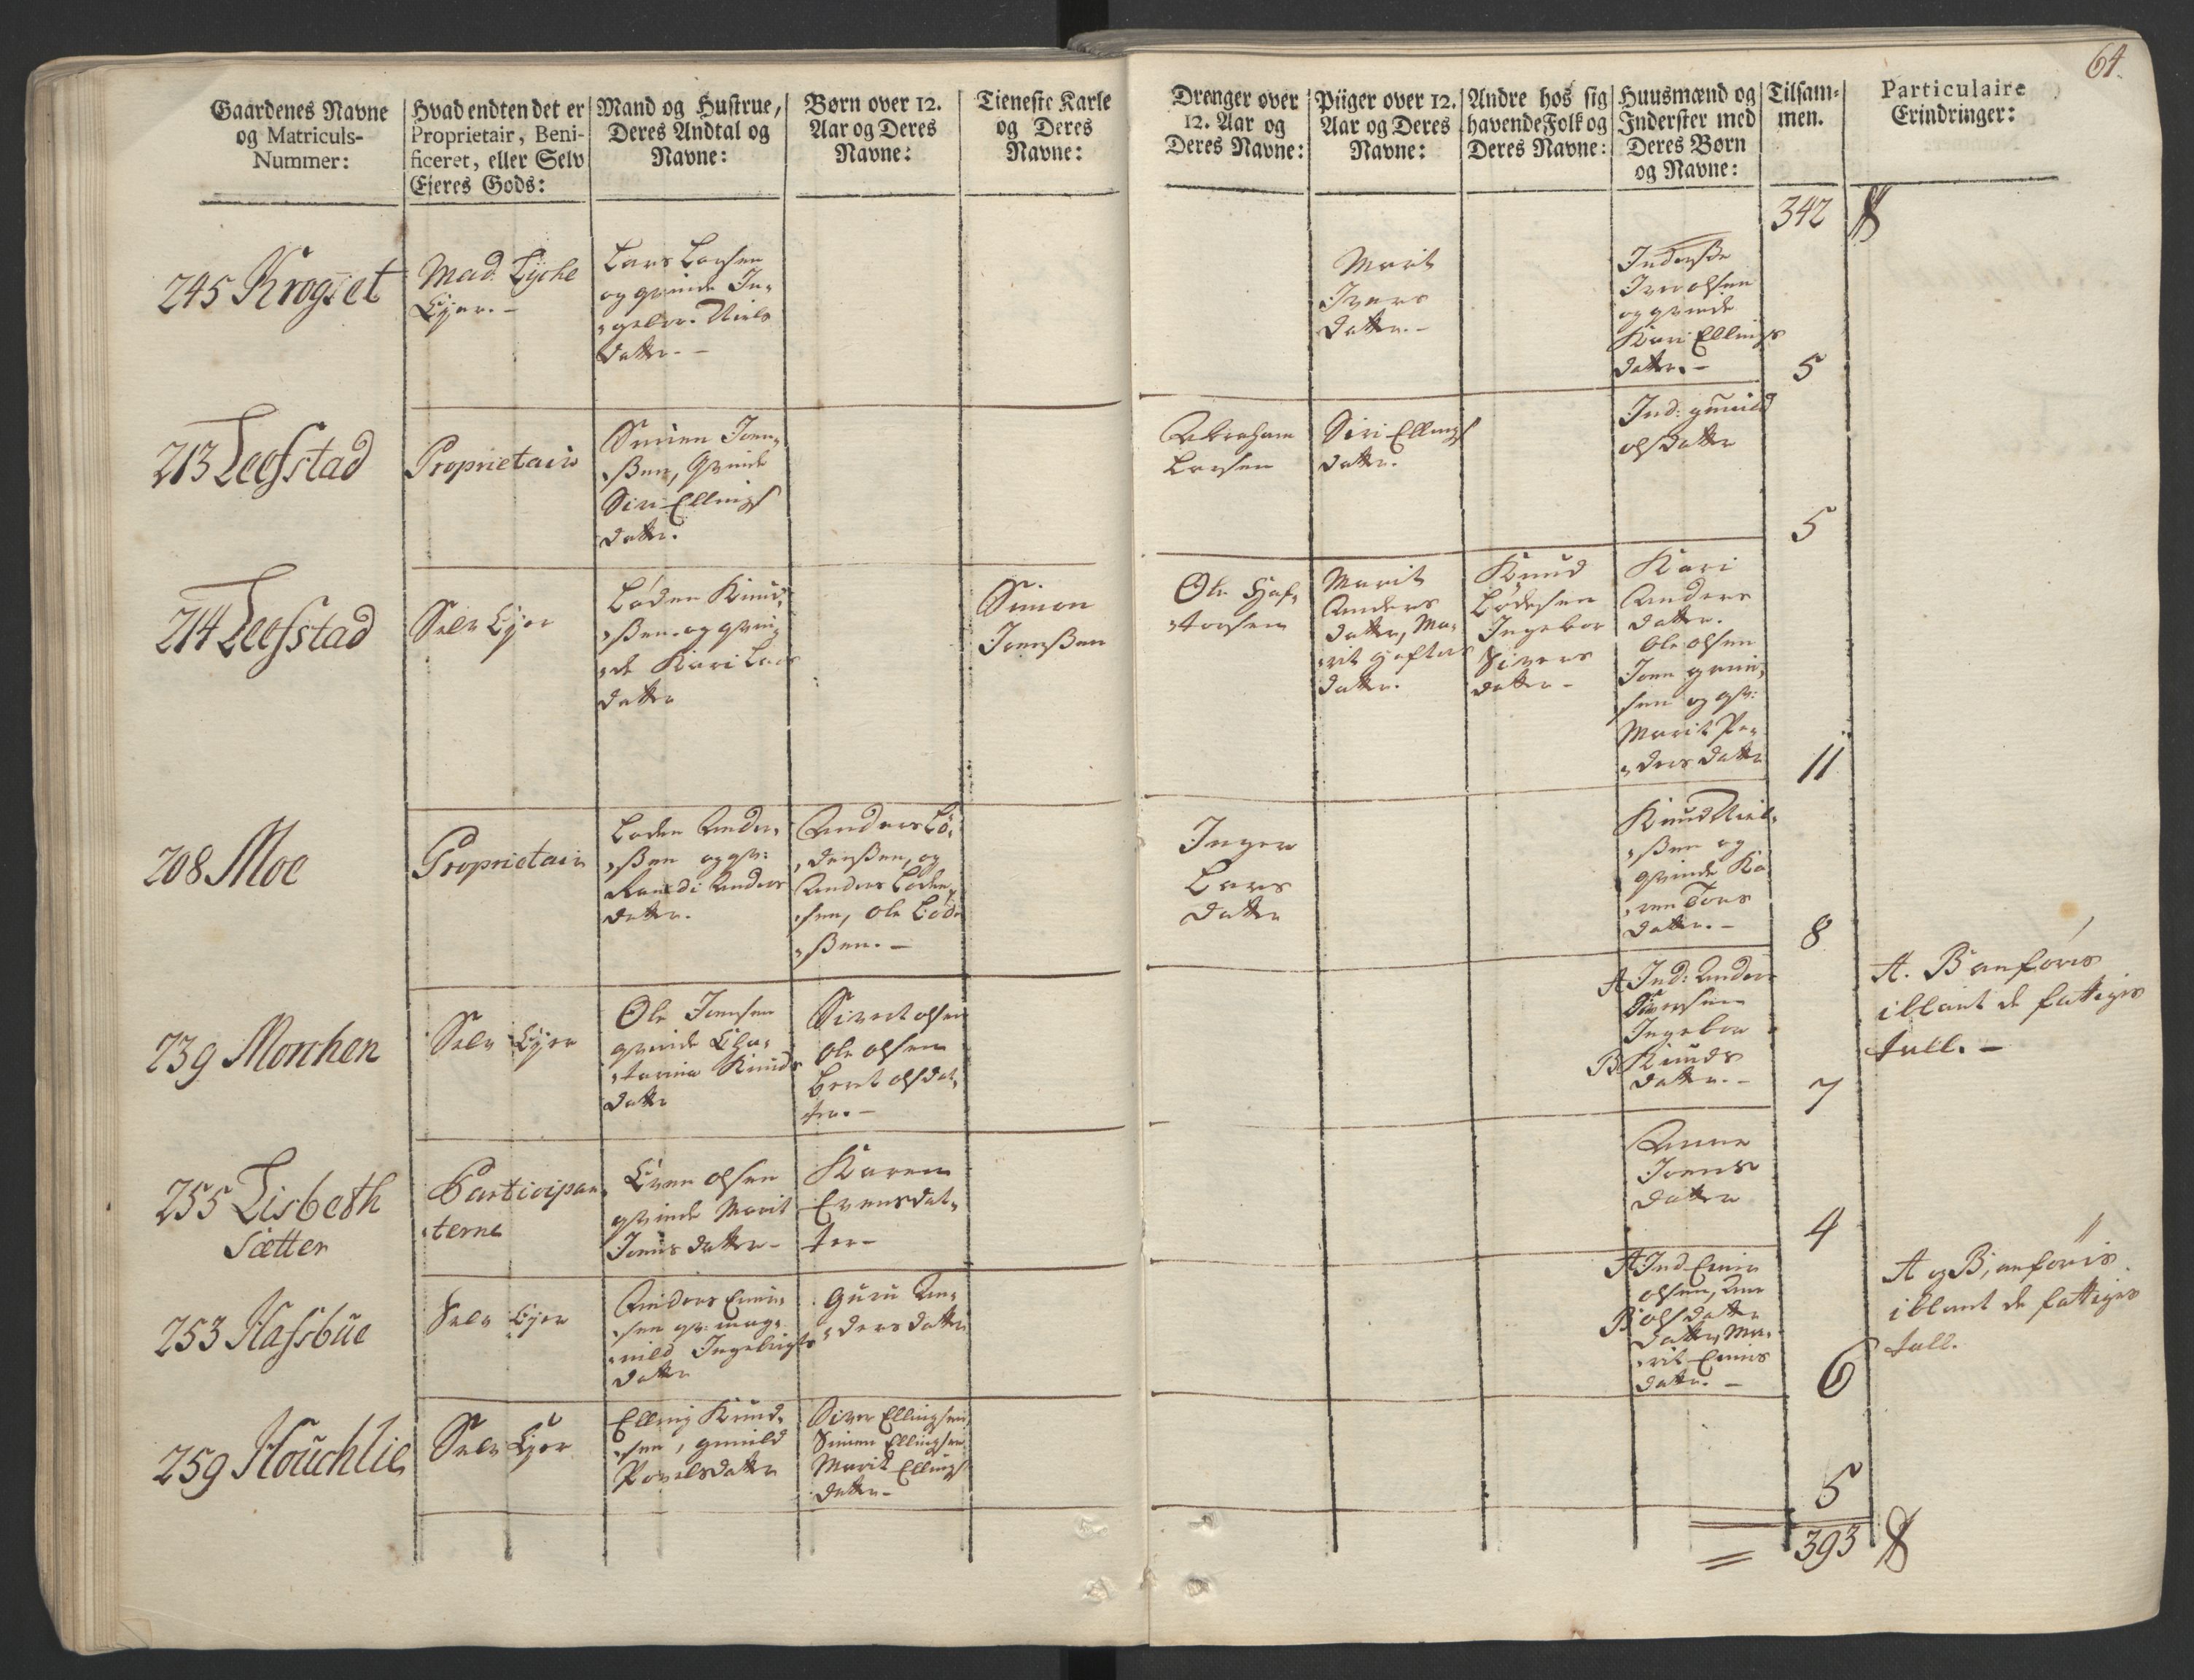 64.
Gaardenes Navne
og Matriculs-
Nummer:
Hvad endten det er
Proprietair, Beni-
ficeret, eller Selv
Ejeres Gods:
Mand og Hustrue,
Deres Andtal og
Navne:
Børn over 12.
Aar og Deres
Navne:
Tieneste Karle
og Deres
Navne:
Drenger over
12. Aar og
Deres Navne:
Piiger over 12.
Aar og Deres
Navne:
Andre hos sig
havende Folk og
Deres Navne:
Huusmænd og
Inderster med
Deres Børn
og Navne:
Tilsam-
men.
Particulaire
Erindringer:
342
245 Krogset
Mad. Lyche
Ejer. -
Lars Larsen
og qvinde In-
gebor Niels
datter. -
Marit
Ivers
datter. -
Inderste
Iver olsen
og qvinde
Kari Ellings
datter. -
5
213 Leefstad
Proprietair
Simen Joen-
ßen, Qvinde
Siri Ellings
datter.
Abraham
Larsen
Siri Ellings
datter.
Ind: gunild
olsdatter
5
214 Leefstad
Selv Ejer
Loden Knud-
ßen og qvin-
de Kari Lars
datter
Simon
Joenßen
Ole Haf-
torsen
Marit
Anders
datter, Ma-
rit Haftors
datter.
Knud
Lodesen
Ingebor
Sivers
datter -
Kari
Anders
datter.
Ole olsen
Joen
sen og qv:
Marit Pe-
ders datter
11
208 Moe
Proprietair
Loden Ander-
ßen og qv:
Randi Anders
datter.
Anders Lo-
denßen, og
Anders Loden-
sen, Ole Lode
ßen. -
Inger
Lars
datter
Knud Niel-
ßen og
qvinde Ka-
ren Tors
datter. -
8
239 Monchen
Selv Ejer
Ole Joensen
qvinde Cha-
tarina Knuds
datter
Sivert olsen
Ole olsen
Beret olsdat-
ter. -
A Ind: Anders
Iversen
Ingebor
B Knuds
datter. -
7
A. B anføris
iblant de fattiges
tall. -
255 Lisbeth
Sætter
Participan-
terne
Even olsen
qvinde Marit
Joens datter -
Karen
Evensdat-
ter -
Anne
Joens
datter
4
253 Hassbue
Selv Ejer
Anders
sen qv: mag-
nild Ingebrigts
datter
Guru An-
ders datter
A Ind
olsen, Ane
B olsdatter
datter, Ma-
rit
datter. -
6
A og B, anføris
iblant de fattiges
tall.
259 Houchlie
Selv Ejer
Elling Knud-
sen, gunild
Povelsdatter
Siver Ellingsen
Simen Ellingsen
Marit Ellings
datter -
5
393